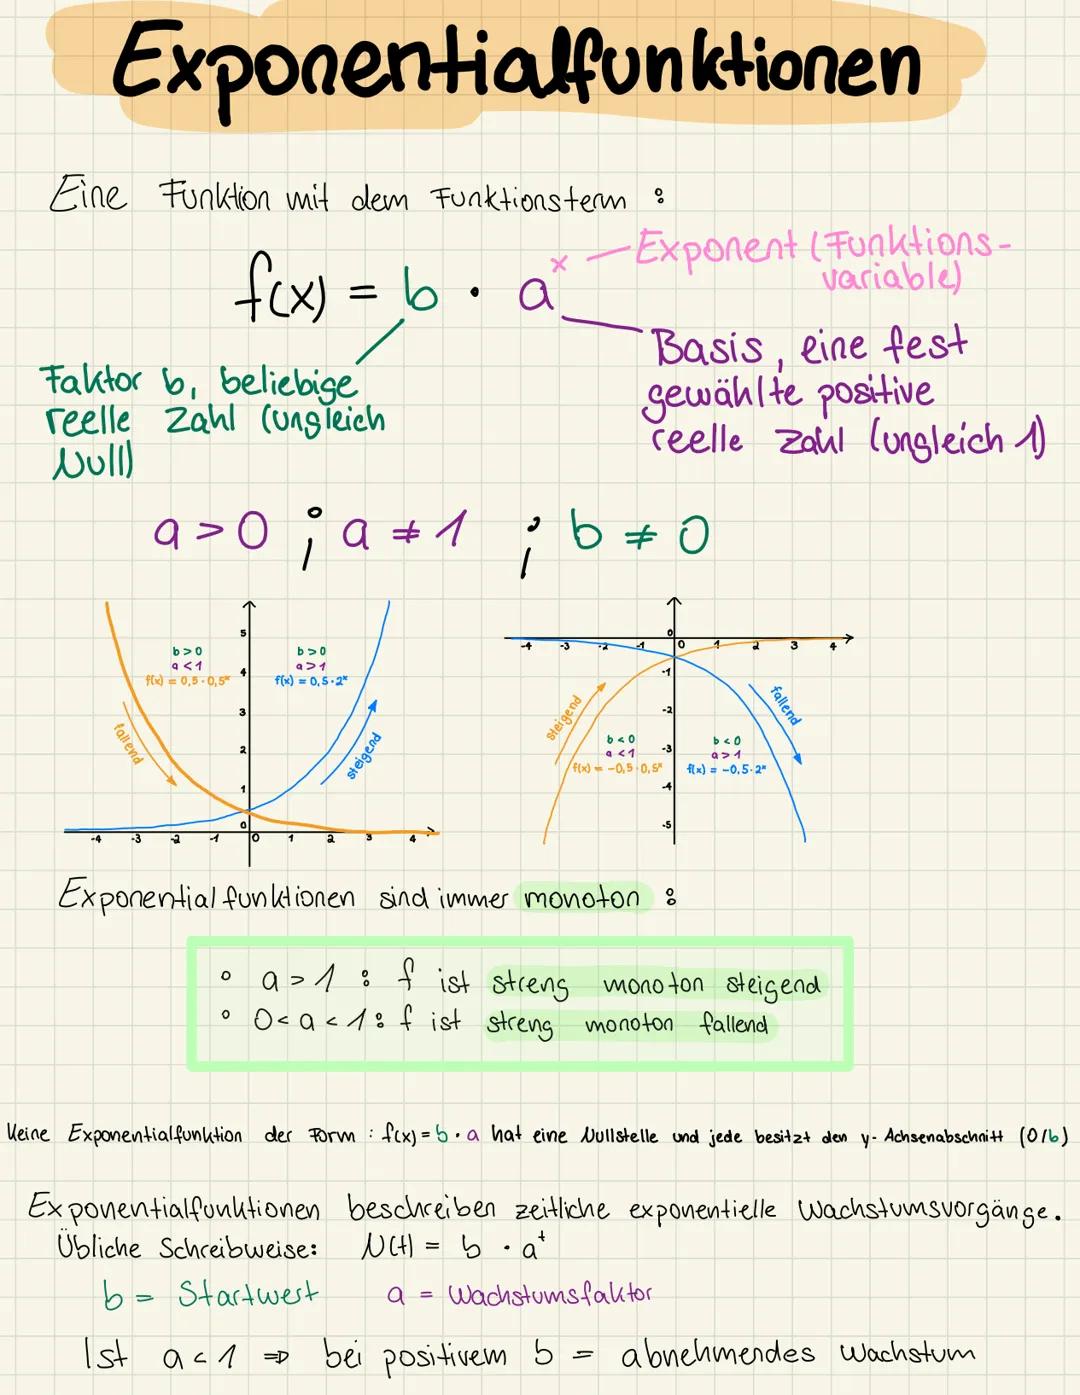 Exponentialfunktionen
Eine Funktion mit dem Funktionsterm :
f(x) = b · aˣ
Exponent (Funktions-
variable)
Faktor b, beliebige
reelle Zahl (ungleich
Null)
Basis, eine fest
gewählte positive
reelle Zahl (ungleich 1)
a > 0 ; a ≠ 1 ; b ≠ 0
b > 0
a < 1
f(x) = 0,5 · 0,5ˣ
b > 0
a > 1
f(x) = 0,5 · 2ˣ
fallend
steigend
5
4
3
2
1
0
-4 -3 -2 -1 0 1 2 3 4
0
-4 -3 -2 -1 0 1 2 3 4
-1
-2
-3
-4
-5
steigend
fallend
b < 0
a < 1
f(x) = -0,5 · 0,5ˣ
b < 0
a > 1
f(x) = -0,5 · 2ˣ
Exponentialfunktionen sind immer monoton :
◦ a > 1 : f ist streng monoton steigend
◦ 0 < a < 1 : f ist streng monoton fallend
Keine Exponentialfunktion der Form : f(x) = b · a hat eine Nullstelle und jede besitzt den y- Achsenabschnitt (0/b)
Exponentialfunktionen beschreiben zeitliche exponentielle Wachstumsvorgänge.
Übliche Schreibweise: N(t) = b · aᵗ
b = Startwert a = Wachstumsfaktor
Ist a < 1 ⇒ bei positivem b = abnehmendes Wachstum